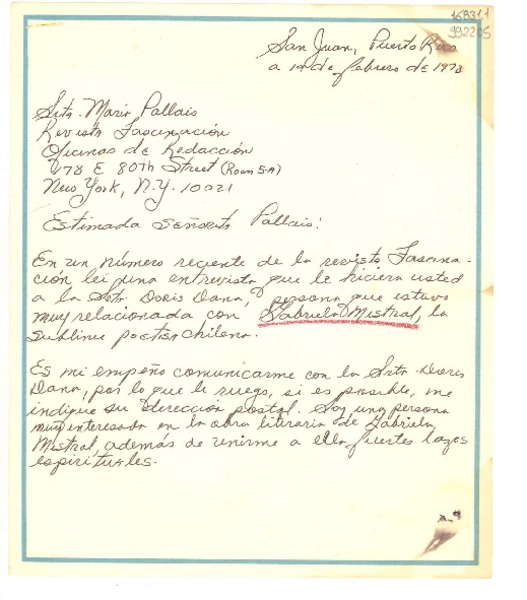 San Juan, Puerto Rico
a 19 de febrero de 1973
Srta. Maria Pallais
Revista Fascinación
Oficinas de Redacción
E 80th Street (Room 5-A)
New York, N.Y. 10021
Estimada Señorita Pallais:
En un número reciente de la revista Fascina-
ción leí una entrevista que le hiciera usted
a la Srta. Doris Dana, persona que estuvo
muy relacionada con Gabriela Mistral, la
sublime poetisa chilena.
Es mi empeño comunicarme con la Srta. Doris
Dana, por lo que le ruego, si es posible, me
indique su dirección postal. Soy una persona
muy interesada en la obra literaria de Gabriela
Mistral, además de unirme a ella fuertes lazos
espirituales.